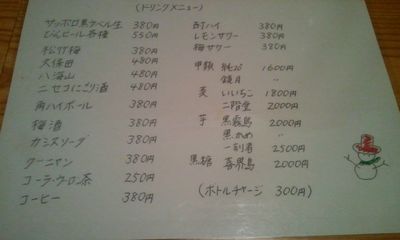 (ドリンクメニュー)
サッポロ黒ラベル生 380円
びんビール各種 550円
松竹梅 380円
久保田 480円
八海山 480円
ニセコにごり酒 480円
角ハイボール 380円
梅酒 380円
カシスソーダ 380円
クーニャン 380円
コーラ・ウーロン茶 250円
コーヒー 380円
酎ハイ 380円
レモンサワー 380円
梅サワー 380円
甲類 純 1600円
鏡月 〃
麦 いいちこ 1800円
二階堂 2000円
芋 黒霧島 2000円
黒かめ 〃
一刻者 2500円
黒糖 喜界島 2000円
(ボトルチャージ 300円)